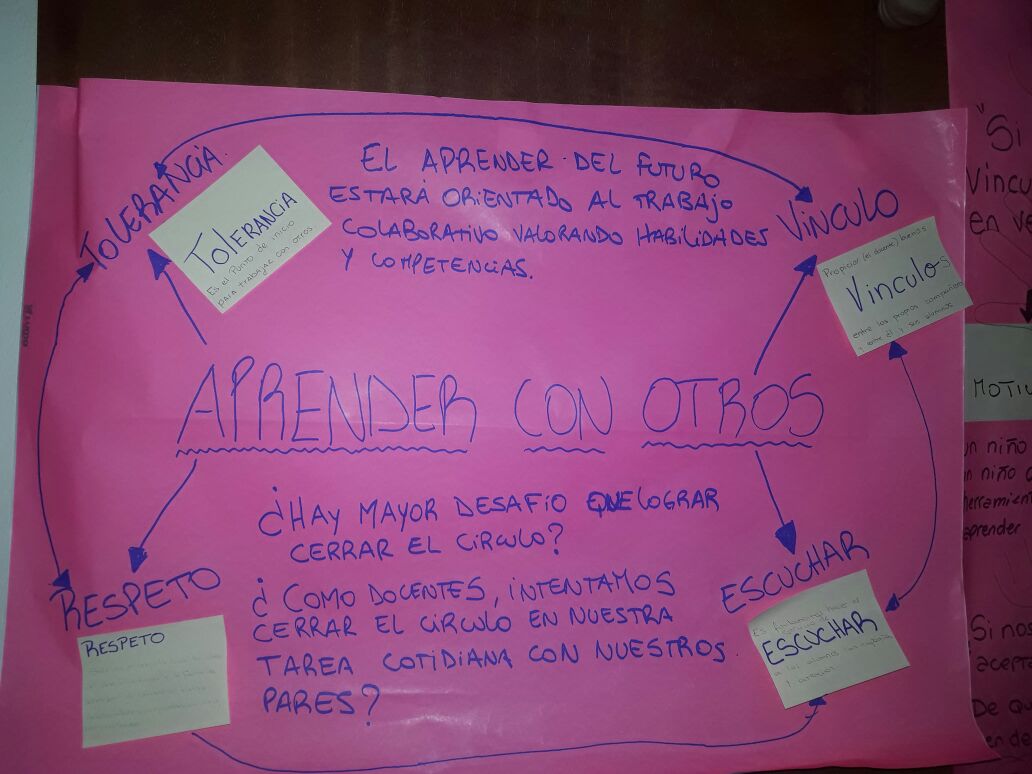 TOLERANCIA
TOLERANCIA
Es el Punto de inicio
para trabajar con otros
EL APRENDER DEL FUTURO
ESTARÁ ORIENTADO AL TRABAJO
COLABORATIVO VALORANDO HABILIDADES
Y COMPETENCIAS.
VINCULO
Propiciar (el docente) buenos
Vinculos
entre los propios compañeros
y entre él y sus alumnos
APRENDER CON OTROS
¿HAY MAYOR DESAFIO QUE LOGRAR
CERRAR EL CIRCULO?
¿ COMO DOCENTES, INTENTAMOS
CERRAR EL CIRCULO EN NUESTRA
TAREA COTIDIANA CON NUESTROS
PARES?
RESPETO
RESPETO
ESCUCHAR
Es
ESCUCHAR
a los alumnos
y
"Si
Vincu
en ve
MOTIV
un niño
un niño
herramien
aprender
Si nos
acepta
De qu
en de